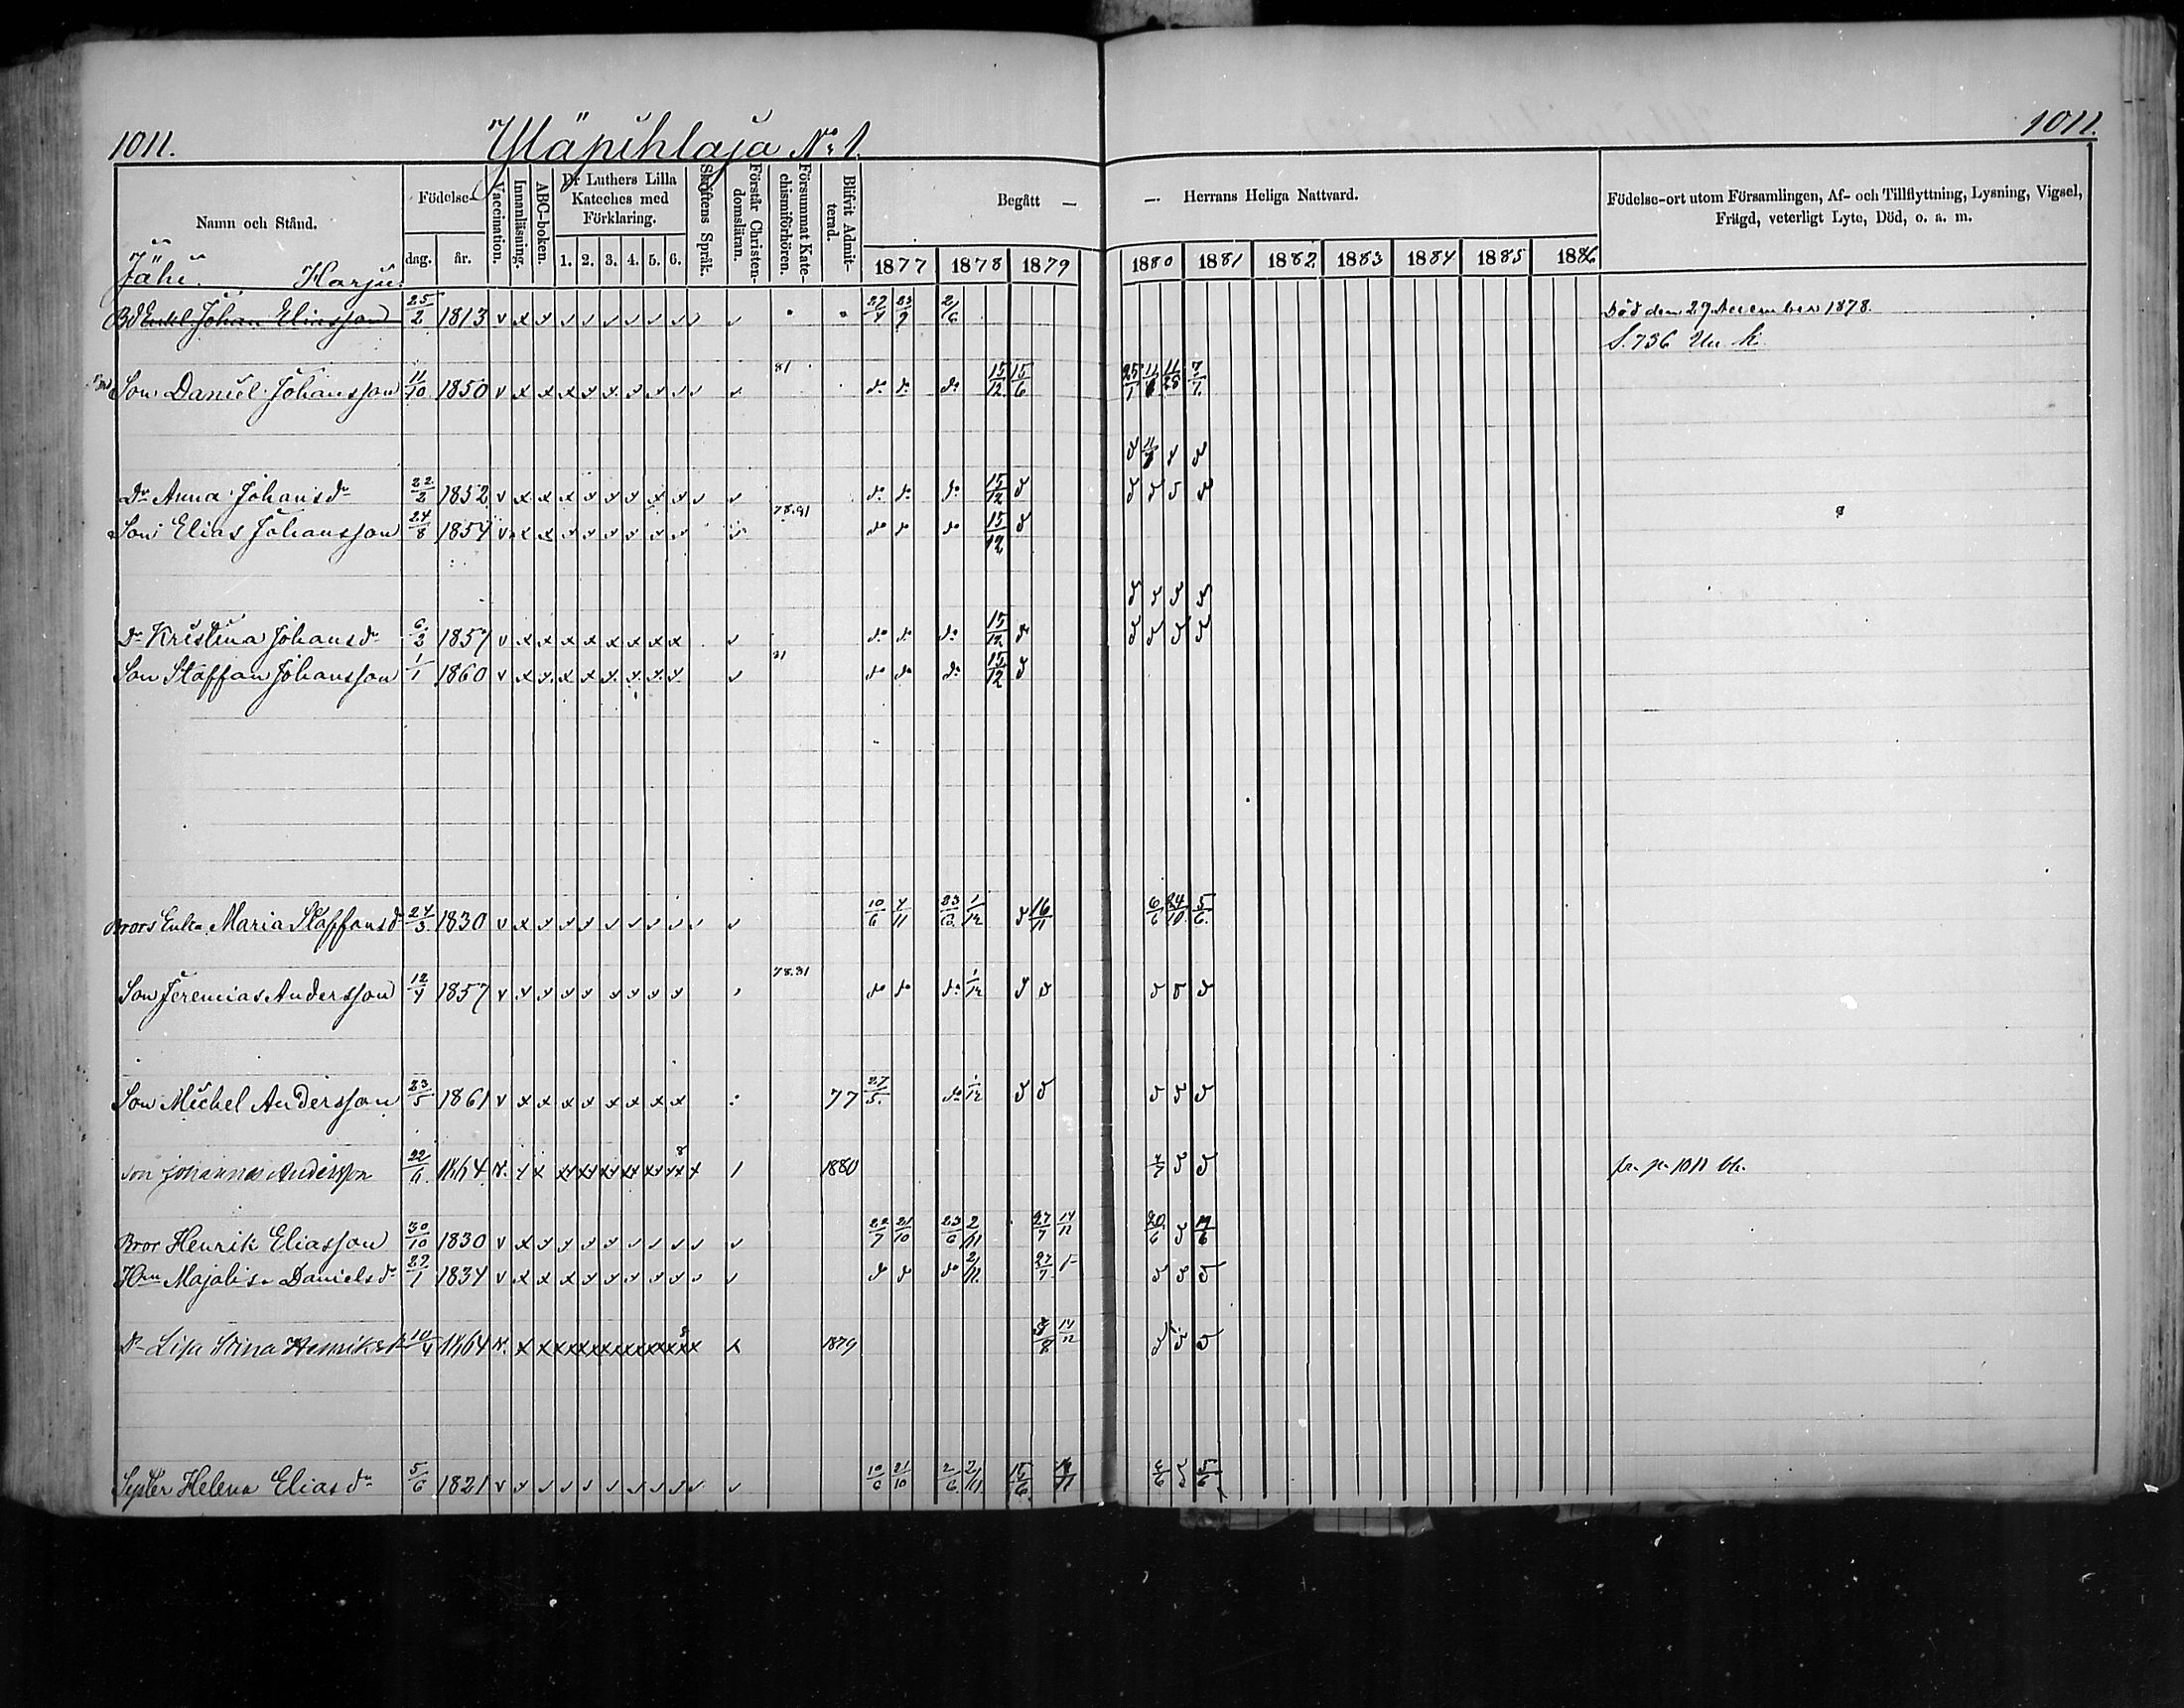 1011. Yläpihlaja No 1. 1011.
Namn och Stånd. Födelse- dag. år. Vaccination. Innanläsning. ABC-boken. Dr Luthers Lilla Kateches med Förklaring. 1. 2. 3. 4. 5. 6. Skriftens Språk. Förstår Christendomsläran. Försummat Katechismiförhören. Blifvit Admitterad. Begått — — Herrans Heliga Nattvard. Födelse-ort utom Församlingen, Af- och Tillflyttning, Lysning, Vigsel, Frägd, veterligt Lyte, Död, o. a. m.
1877 1878 1879 1880 1881 1882 1883 1884 1885 1886
Jähi. Harju.
Bd Enkl. Johan Eliasson 25/2 1813 Död den 27 December 1878.
S. 736
Son Daniel Johansson 11/10 1850 81 do do do 15/12 15/6 25/1 7/1
Dr Anna Johansdr 22/2 1852 do do do 15/12 d
Son Elias Johansson 24/8 1854 78.81 do do do 15/12 d
Dr Kristina Johansdr 6/2 1857 do do do 15/12 d
Son Staffan Johansson 1/1 1860 81 do do do 15/12 d
Brors Enka Maria Staffansdr 24/3 1830 10/6 4/11 23/6 1/12 d 16/11 6/6 24/10 5/6
Son Jeremias Andersson 12/4 1857 78.81 do do do 1/12 d d d d d
Son Michel Andersson 23/5 1861 77 27/5 do 1/12 d d d d d
Son Johannes Andersson 22/6 1864 8 1880 4/7 d d fr. p. 1011
Bror Henrik Eliasson 30/10 1830 22/7 21/10 23/6 2/11 27/7 14/11 20/6 d
Hru Majalisa Danielsdr 27/1 1834 do do do 2/11 27/7 d d d
Dr Lisa Stina Henriksdr 10/4 1864 8 1879 14/11 d d d
Syster Helena Eliasdr 5/6 1821 10/6 21/10 2/6 2/11 15/6 6/6 5/6